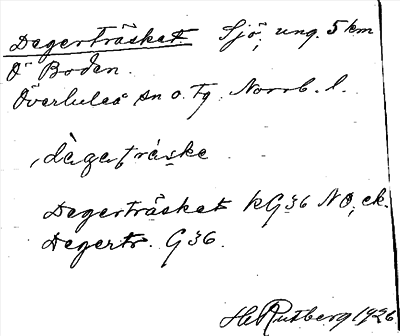 Degerträsket. Sjö, ung. 5 km
Ö Boden.
Överluleå sn o. tg. Norrb. l.
dègerträske
Degerträsket kG36 NO, ek.
Degertr. G36.
H Rutberg 1926